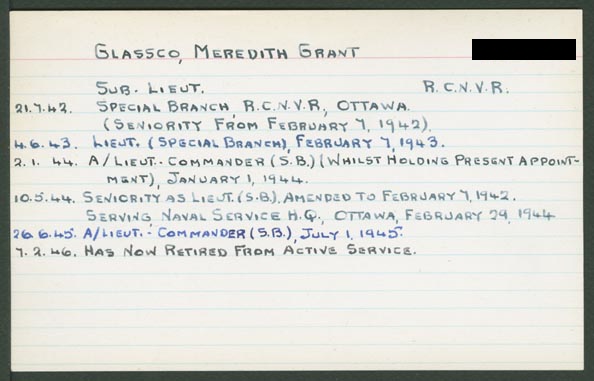 GLASSCO, MEREDITH GRANT
SUB. LIEUT. R.C.N.V.R.
21.7.42. SPECIAL BRANCH, R.C.N.V.R., OTTAWA.
(SENIORITY FROM FEBRUARY 7, 1942).
4.6.43. LIEUT. (SPECIAL BRANCH), FEBRUARY 7, 1943.
2.1.44. A/LIEUT.-COMMANDER (S.B.) (WHILST HOLDING PRESENT APPOINT-
MENT), JANUARY 1, 1944.
10.5.44. SENIORITY AS LIEUT. (S.B.), AMENDED TO FEBRUARY 7, 1942.
SERVING NAVAL SERVICE H.Q., OTTAWA, FEBRUARY 29, 1944
26.6.45. A/LIEUT.-COMMANDER (S.B.), JULY 1, 1945.
7.2.46. HAS NOW RETIRED FROM ACTIVE SERVICE.